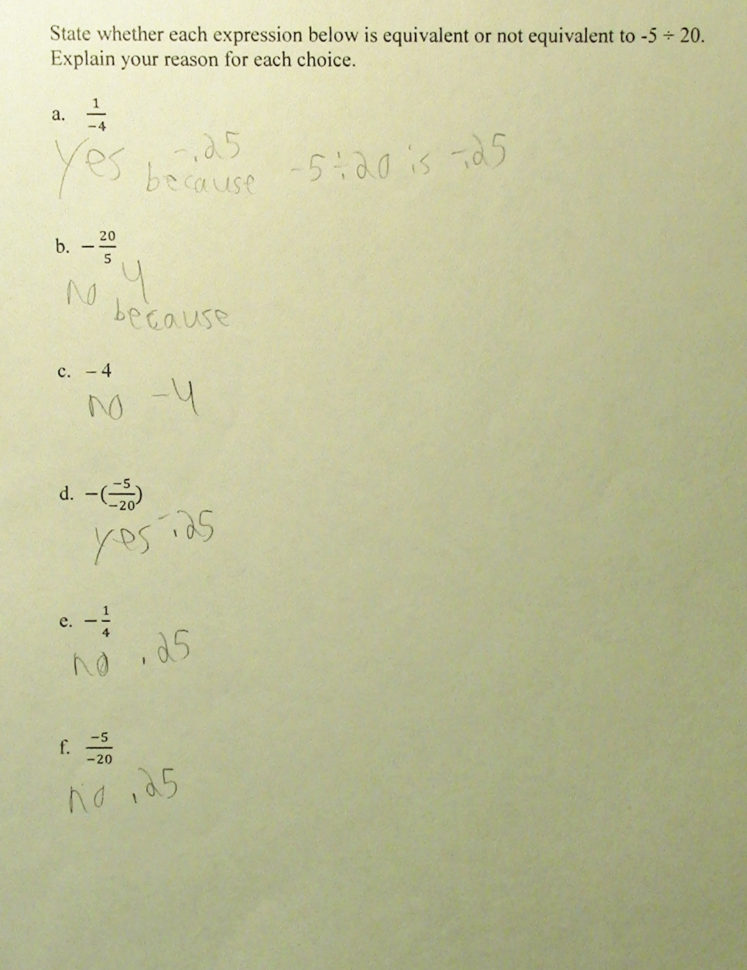 State whether each expression below is equivalent or not equivalent to -5 ÷ 20.
Explain your reason for each choice.
a. 1/-4
Yes -.25
because -5÷20 is -.25
b. -20/5
no 4
because
c. -4
no -4
d. -(-5/-20)
yes -.25
e. -1/4
no .25
f. -5/-20
no .25